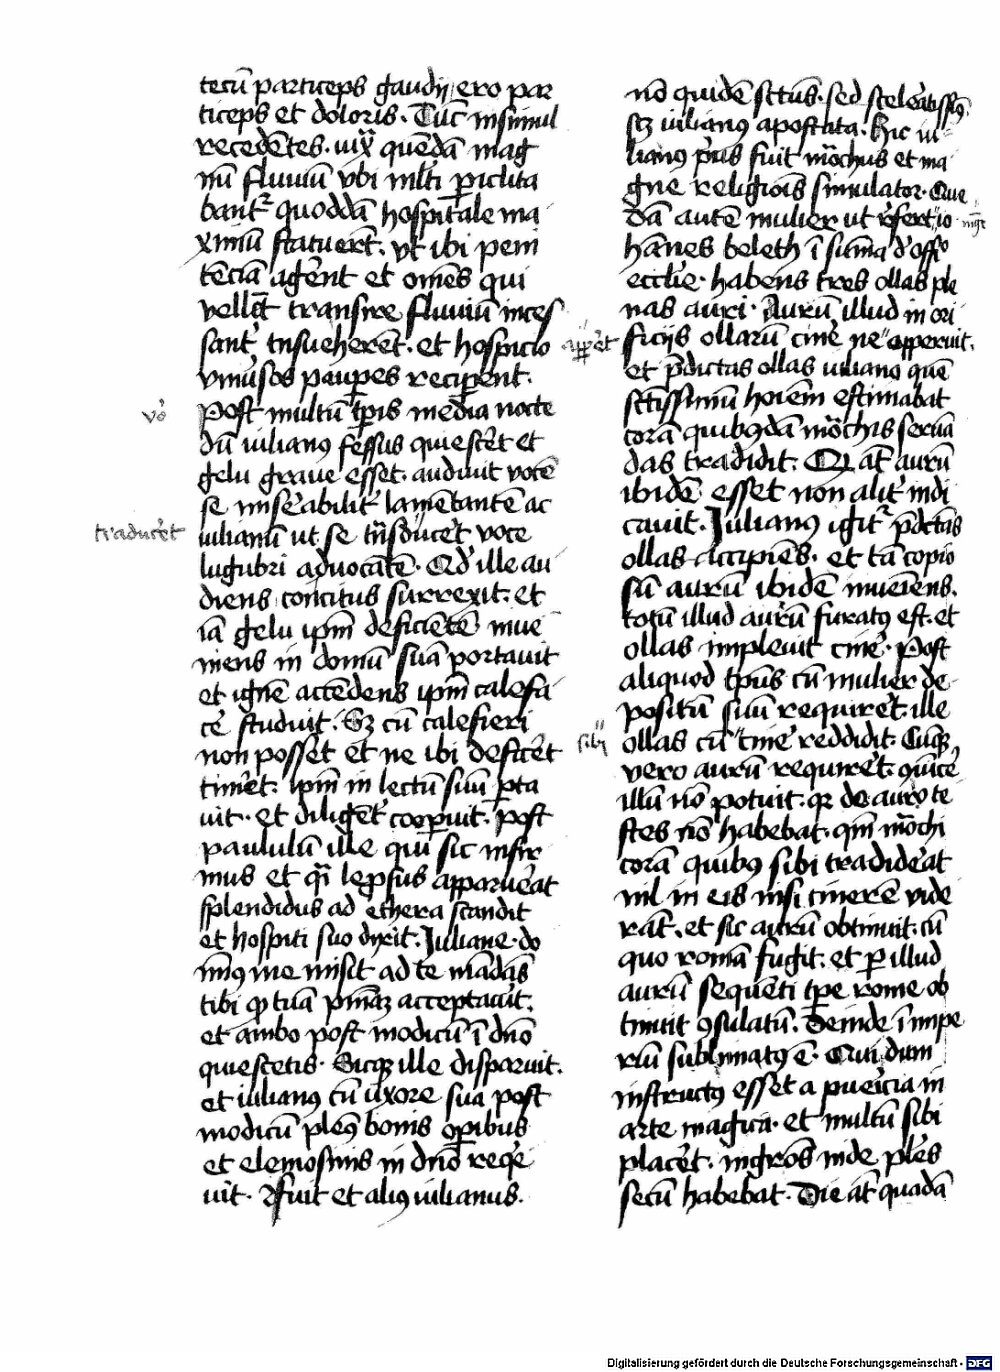 tecū particeps gaudij ero par
ticeps et doloris. Tūc insimul
recedētes. iux̄ quēdā mag
nū fluuiū vbi mlti piclita
bant quoddā hospitale ma
ximū statuerūt. vt ibi peni
tēciā agerēt et omēs qui
vellēt transire fluuiū inces
sant trāsueherēt. et hospicio
vniūsos paupes reciperent.
vo
Post multū tpis media nocte
dū iulianꝰ fessus quiescēt et
gelu graue esset. audiuit vocē
se miserabilit lamētantē ac
traducēt
iulianū ut se trāsducēt voce
lugubri aduocātē. Qd ille au
diens concitus surrexit. et
iā gelu ipm deficiētē inue
niens in domū suā portauit
et ignē accēdens ipm calefa
cē studuit. Sꝫ cū calefieri
non possēt et ne ibi deficēt
timēt. ipm in lectū suū pta
uit. et diligēt coopuit. post
paululū ille qui sic infir
mus et qi lepsus apparuēat
splendidus ad ethera scandit
et hospiti suo dixit. Iuliane. do
minꝰ me misit ad te mādās
tibi qꝫ tuā pniaꝫ acceptauit.
et ambo post modicū ī dno
quiescetis. Sicqꝫ ille disparuit.
et iulianꝰ cū uxore sua post
modicū plenꝰ bonis opibus
et elemosinis in dno reqe
uit. Fuit et aliꝰ iulianus.
nō quidē sctūs. sed sceleratissīꝰ.
sꝫ iulianꝰ apostata. Hic iu
lianꝰ pus fuit mōchus et ma
gne religiois simulator. Que
dā autē mulier ut rēfert io
hānes beleth ī sūma d offo
ecclie. habens tres ollas ple
nas auri. Aurū illud in ori
appēt
ficijs ollarū cinē ne apperuit.
et pdictas ollas iuliano quē
sctissimū hoiem estimabat
corā quibꝰdā mōchis serua
das tradidit. Qꝫ at aurū
ibidē esset non alit indi
cauit. Iulianꝰ igit pdctās
ollas accipiēs. et tā copio
sū aurū ibidē inueiens.
totū illud aurū furatꝰ est. et
ollas impleuit cinē. Post
aliquod tpus cū mulier de
positū suū requirēt. ille
sibi
ollas cū cinē reddidit. Cuqꝫ
vero aurū requirēt. quīcē
illū nō potuit. qꝛ de auro te
stes nō habebat. qm mōchi
corā quibꝰ sibi tradidēat
nil in eis nisi cinerē vide
rāt. et sic aurū obtinuit. cū
quo romā fugit. et p illud
aurū sequēti tpe rome ob
tinuit ꝯsulatū. Deinde ī impe
riū sublimatꝰ ē. Cui dum
instructꝰ esset a puericia in
arte magica. et multū sibi
placēt. mgros inde ples
secū habebat. Die at quadā
Digitalisierung gefördert durch die Deutsche Forschungsgemeinschaft - DFG